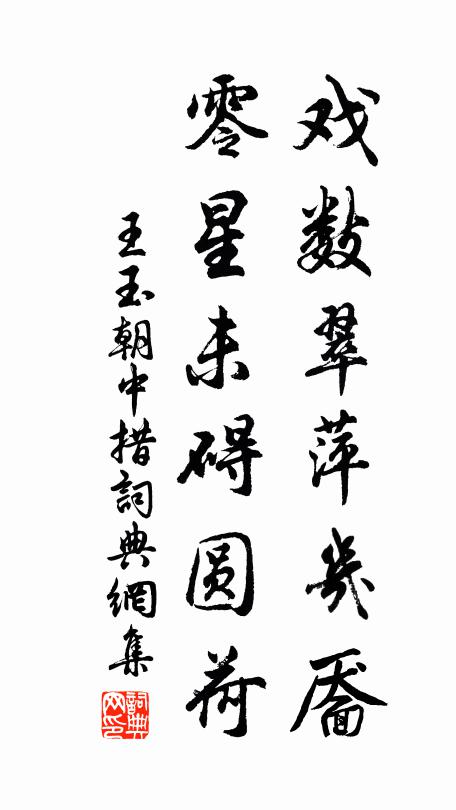 戏数翠萍幾靥
零星未碍圆荷
王玉朝中措詞典網集
詞典网印